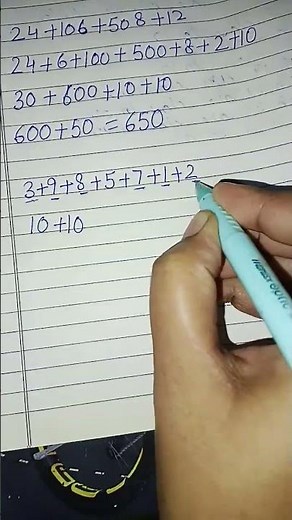 24+106+508+12
24+6+100+500+8+2+10
30+600+10+10
600+50 = 650
3+9+8+5+7+1+2
10+10